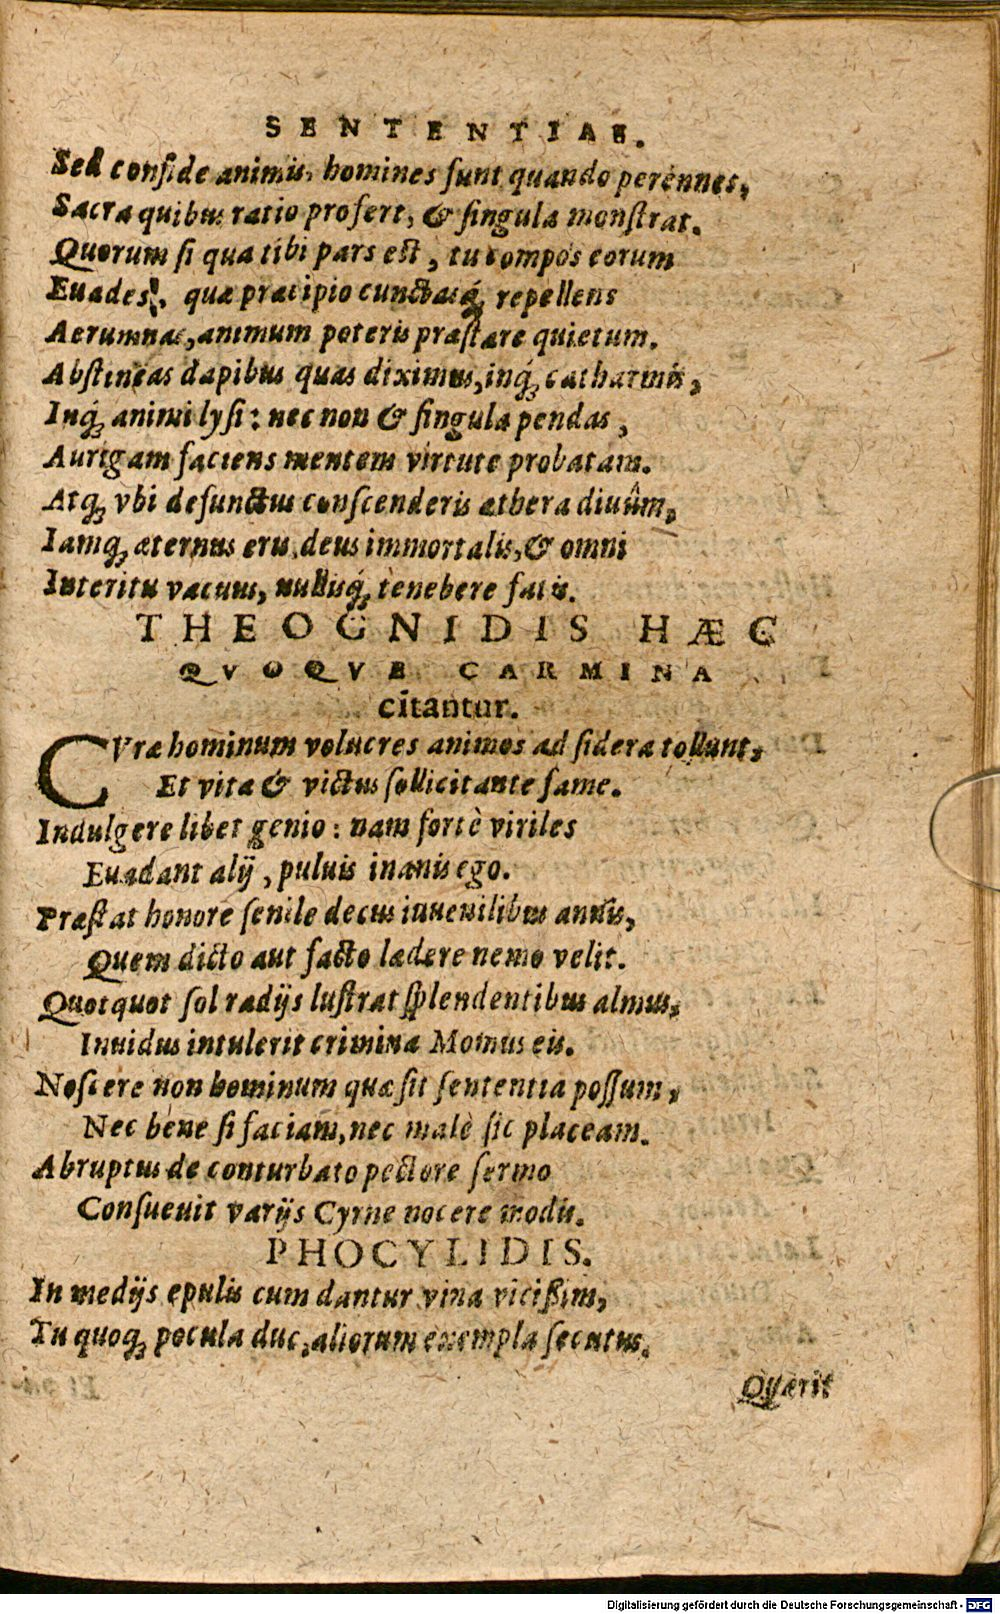 SENTENTIAE.
Sed confide animis, homines sunt quando perennes,
Sacra quibus ratio profert, & singula monstrat.
Quorum si qua tibi pars est, tu compos eorum
Euades, quæ præcipio cunctasq́; repellens
Aerumnas, animum poteris præstare quietum.
Abstineas dapibus quas diximus, inq́; catharmis,
Inq́; animi lysi: nec non & singula pendas,
Aurigam faciens mentem virtute probatam.
Atq; vbi defunctus conscenderis æthera diuûm,
Iamq; æternus eris deus immortalis, & omni
Interitu vacuus, nullisq́; tenebere fatis.
THEOGNIDIS HÆC
QVOQVE CARMINA
citantur.
CVræ hominum volucres animos ad sidera tollunt,
Et vita & victus sollicitante fame.
Indulgere libet genio: nam fortè viriles
Euadant alij, puluis inanis ego.
Præstat honore senile decus iuuenilibus annis,
Quem dicto aut facto lædere nemo velit.
Quotquot sol radijs lustrat splendentibus almus,
Inuidus intulerit crimina Momus eis.
Noscere non hominum quæ sit sententia possum,
Nec bene si faciam, nec malè sic placeam.
Abruptus de conturbato pectore sermo
Consueuit varijs Cyrne nocere modis.
PHOCYLIDIS.
In medijs epulis cum dantur vina vicißim,
Tu quoq; pocula duc, aliorum exempla secutus.
Quærit
Digitalisierung gefördert durch die Deutsche Forschungsgemeinschaft - DFG